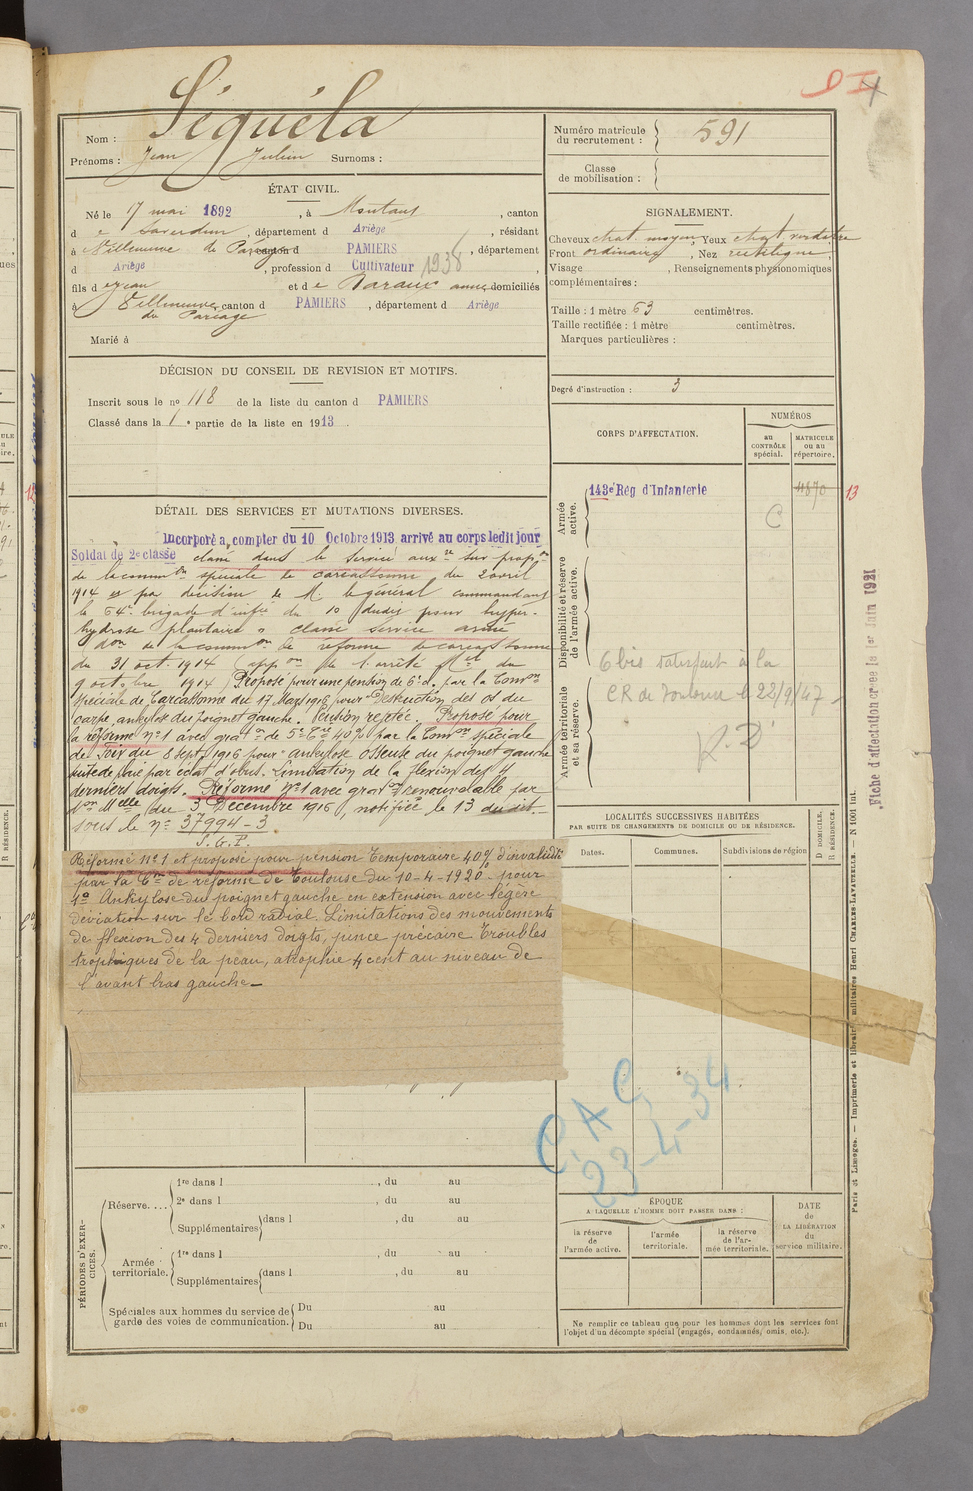 Nom : Séquéla
Prénoms : Jean Julien Surnoms :
ÉTAT CIVIL.
Né le 17 mai 1892, à Montaut, canton
d e Saverdun, département d Ariège, résidant
à Villeneuve du Paréage canton d PAMIERS, département
d Ariège, profession de Cultivateur 1938,
fils d e Jean et de Baraux anne domiciliés
à Villeneuve canton d PAMIERS, département d Ariège
du Paréage
Marié à
DÉCISION DU CONSEIL DE REVISION ET MOTIFS.
Inscrit sous le no 118 de la liste du canton d PAMIERS
Classé dans la 1e partie de la liste en 1913.
DÉTAIL DES SERVICES ET MUTATIONS DIVERSES.
Incorporé à compter du 10 Octobre 1913 arrivé au corps ledit jour
Soldat de 2e classe classé dans le service auxre sur propon
de la common spéciale de Carcassonne du 2 avril
1914 et par décision de M. le général commandant
la 64e brigade d'infie du 10 dudit pour hyper-
hydrose plantaire. Classé service armé
don de la common de réforme de Carcassonne
du 31 oct. 1914 (appon de l'arrêté Mel du
9 octobre 1914 Proposé pour une pension de 6e cl. par la Comon
Spéciale de Carcassonne du 17 Mars 1916, pour "Destruction des os du
carpe, ankylose du poignet gauche. Pension rejetée. Proposé pour
la réforme no 1 avec graton de 5e Cie 40% par la Comon spéciale
de Foix du 8 sept. 1916 pour "ankylose osseuse du poignet gauche
suite de plaie par éclat d'obus. Limitation de la flexion des 4
derniers doigts. Réformé No 1 avec graton renouvelable par
don Melle du 3 Décembre 1916, notifiée le 13 du dit
sous le no 37994-3
S.G.P.
Réformé No 1 et proposé pour pension temporaire 40% d'invalidité
par la Con de réforme de Toulouse du 10-4-1920 pour
1o Ankylose du poignet gauche en extension avec légère
déviation sur le bord radial. Limitations des mouvements
de flexion des 4 derniers doigts, pince précaire troubles
trophiques de la peau, atrophie 4 cent au niveau de
l'avant bras gauche
PÉRIODES D'EXERCICES.
Réserve....
1re dans l , du au
2e dans l , du au
Supplémentaires dans l , du au
Armée territoriale.
1re dans l , du au
Supplémentaires dans l , du au
Spéciales aux hommes du service de garde des voies de communication.
Du au
Du au
Numéro matricule du recrutement : 591
Classe de mobilisation :
SIGNALEMENT.
Cheveux chat. moyen, Yeux chat verdatre
Front ordinaire, Nez rectiligne,
Visage , Renseignements physionomiques
complémentaires :
Taille : 1 mètre 63 centimètres.
Taille rectifiée : 1 mètre centimètres.
Marques particulières :
Degré d'instruction : 3
CORPS D'AFFECTATION.
NUMÉROS
au CONTRÔLE spécial.
MATRICULE ou au répertoire.
Armée active.
143e Rég d'Infanterie
4870
13
C
Disponibilité et réserve de l'armée active.
6 bis satisfait à la
CR de Toulouse le 22/9/47
R.D
Armée territoriale et sa réserve.
LOCALITÉS SUCCESSIVES HABITÉES
PAR SUITE DE CHANGEMENTS DE DOMICILE OU DE RÉSIDENCE.
D DOMICILE.
R RÉSIDENCE.
Dates.
Communes.
Subdivisions de région
C.A.C.
23-4-34
ÉPOQUE
A LAQUELLE L'HOMME DOIT PASSER DANS :
la réserve de l'armée active.
l'armée territoriale.
la réserve de l'armée territoriale.
DATE de LA LIBÉRATION du service militaire.
Ne remplir ce tableau que pour les hommes dont les services font
l'objet d'un décompte spécial (engagés, condamnés, omis, etc.).
Fiche d'affectation créée le 1er Juin 1921
Paris et Limoges. — Imprimerie et librairie militaires Henri CHARLES-LAVAUZELLE. — N 1001 int.